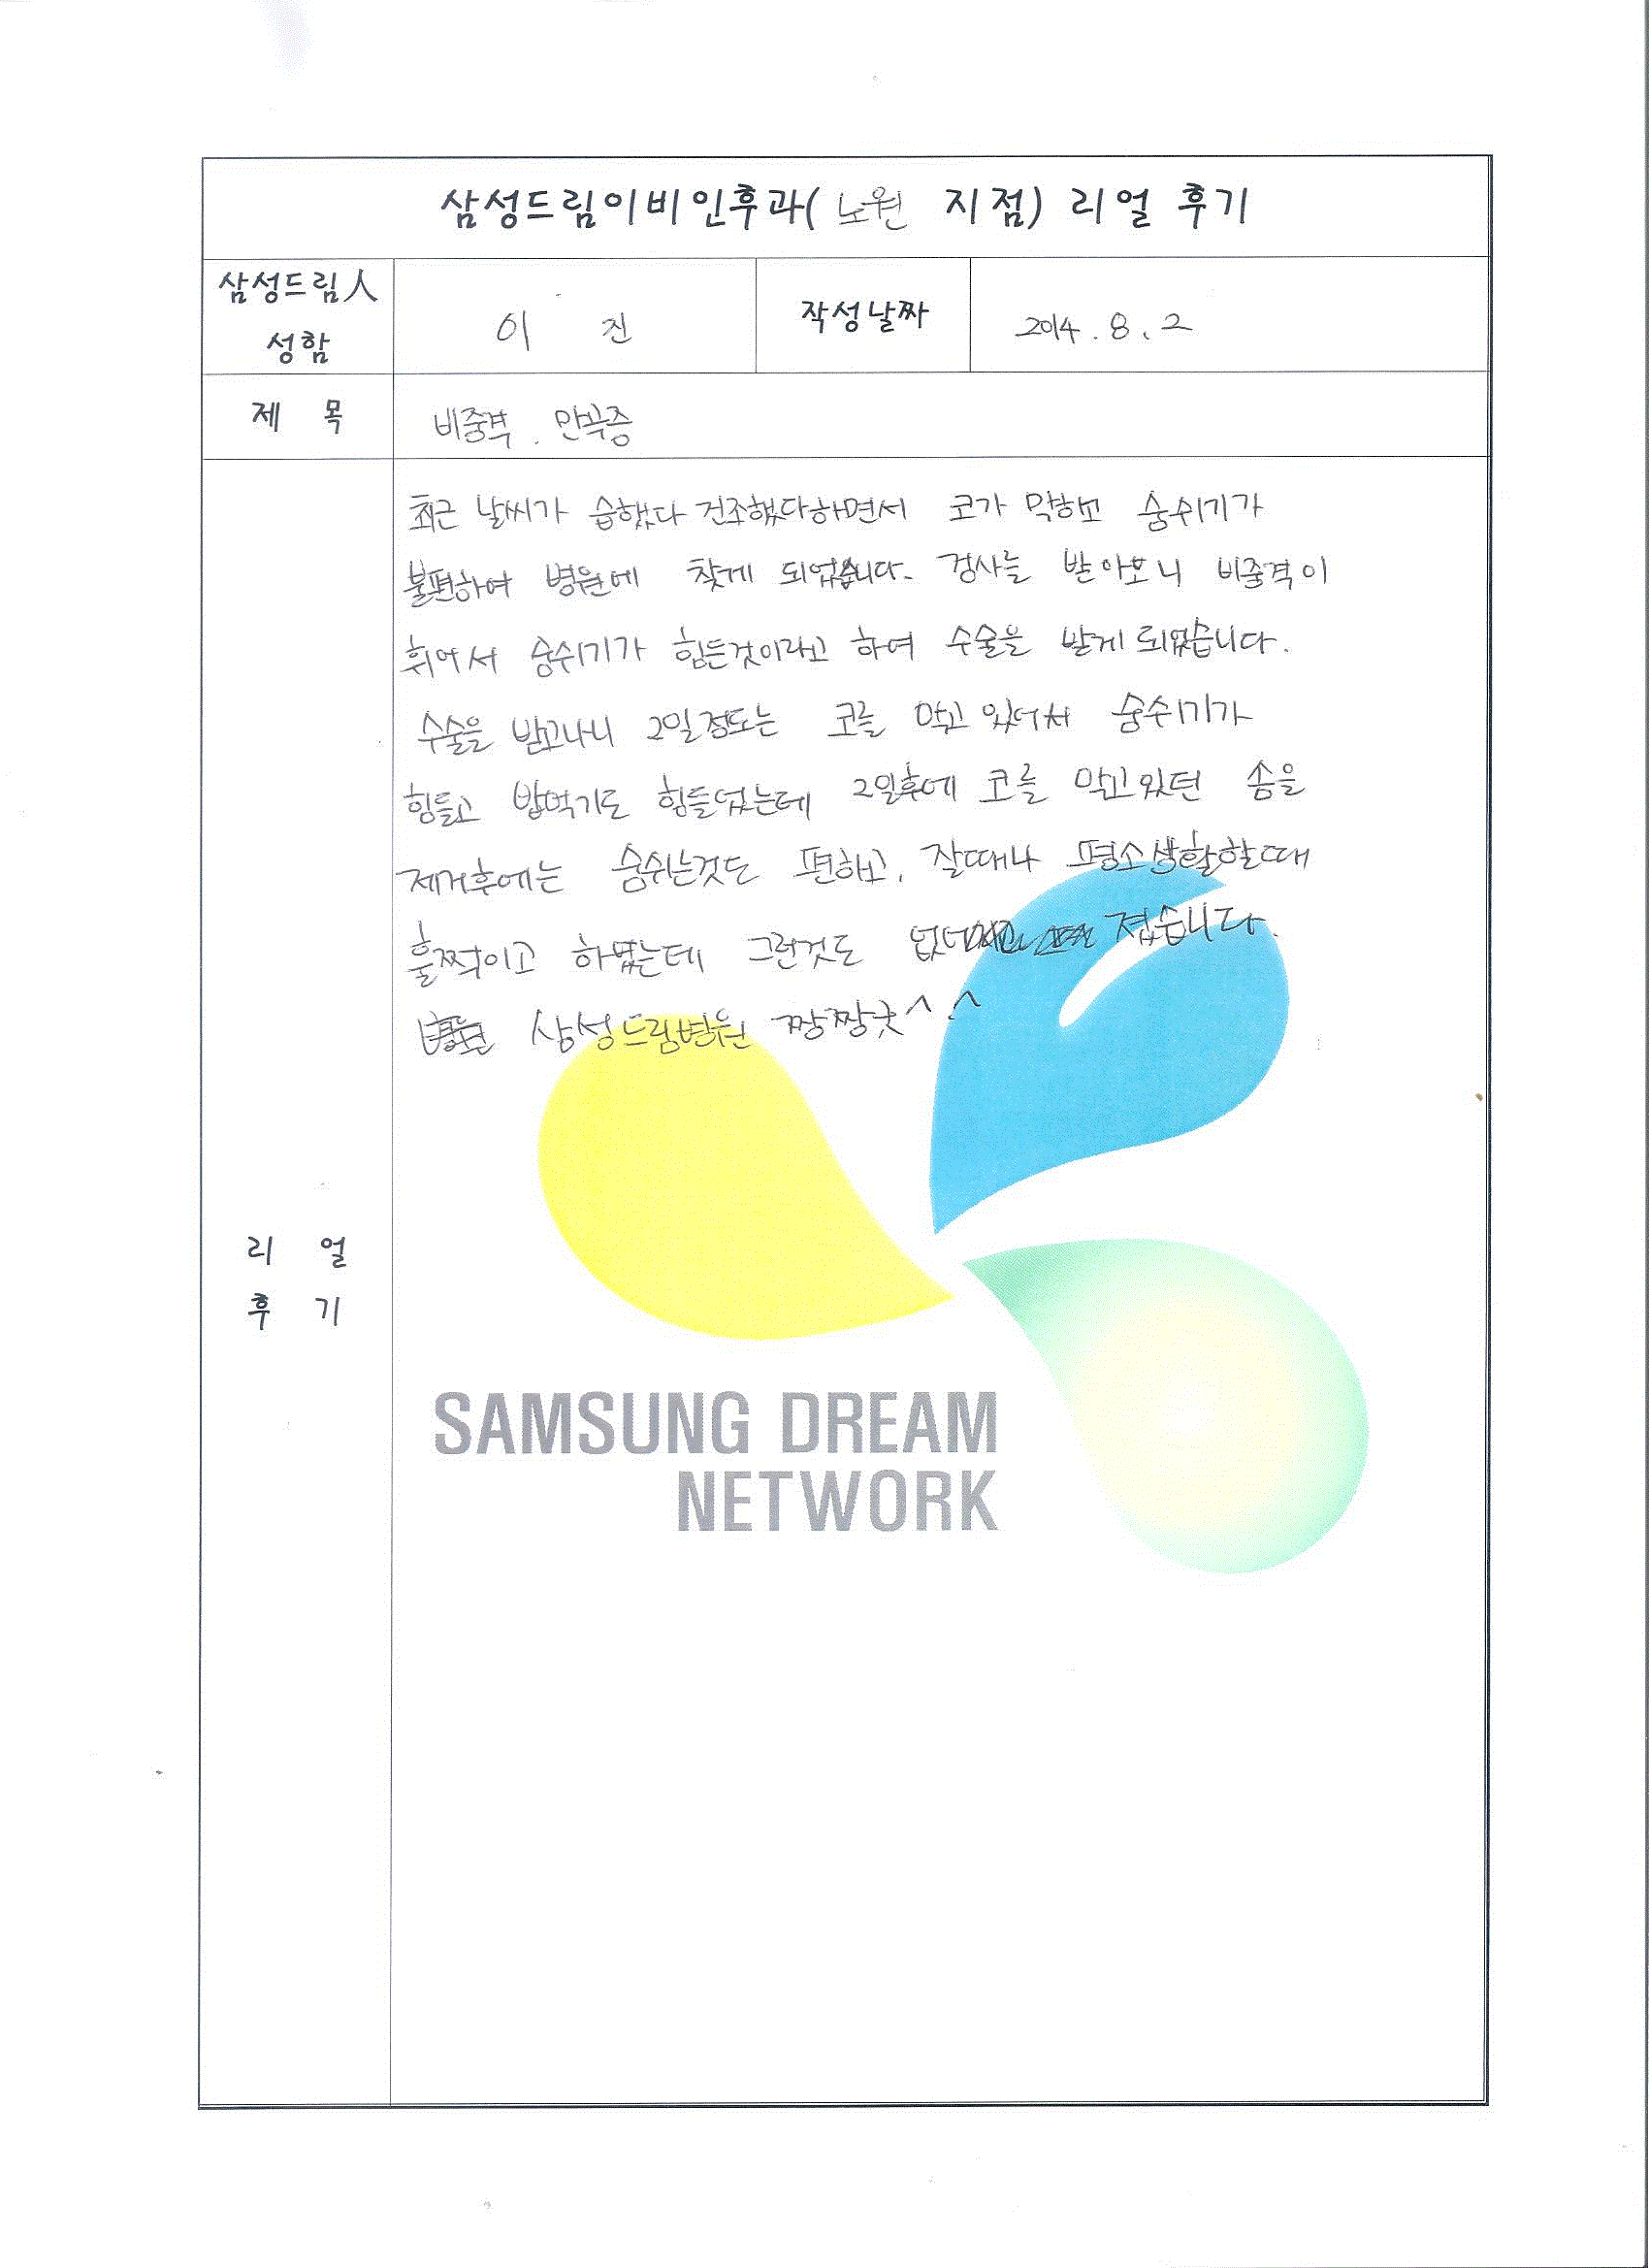 삼성드림이비인후과( 노원 지점) 리얼 후기
삼성드림人
성함
이 진
작성날짜
2014. 8. 2
제 목
비중격. 만곡증
최근 날씨가 습했다 건조했다하면서 코가 막히고 숨쉬기가
불편하여 병원에 찾게 되었습니다. 검사를 받아보니 비중격이
휘어서 숨쉬기가 힘든것이라고 하여 수술을 받게되었습니다.
수술을 받고나니 2일정도는 코를 막고있어서 숨쉬기가
힘들고 밥먹기도 힘들었는데 2일후에 코를 막고있던 솜을
제거후에는 숨쉬는것도 편하고, 잘때나 평소생활할때
훌쩍이고 하였는데 그런것도 없어졌습니다.
삼성드림병원 짱짱굿^.^
리 얼
후 기
SAMSUNG DREAM
NETWORK